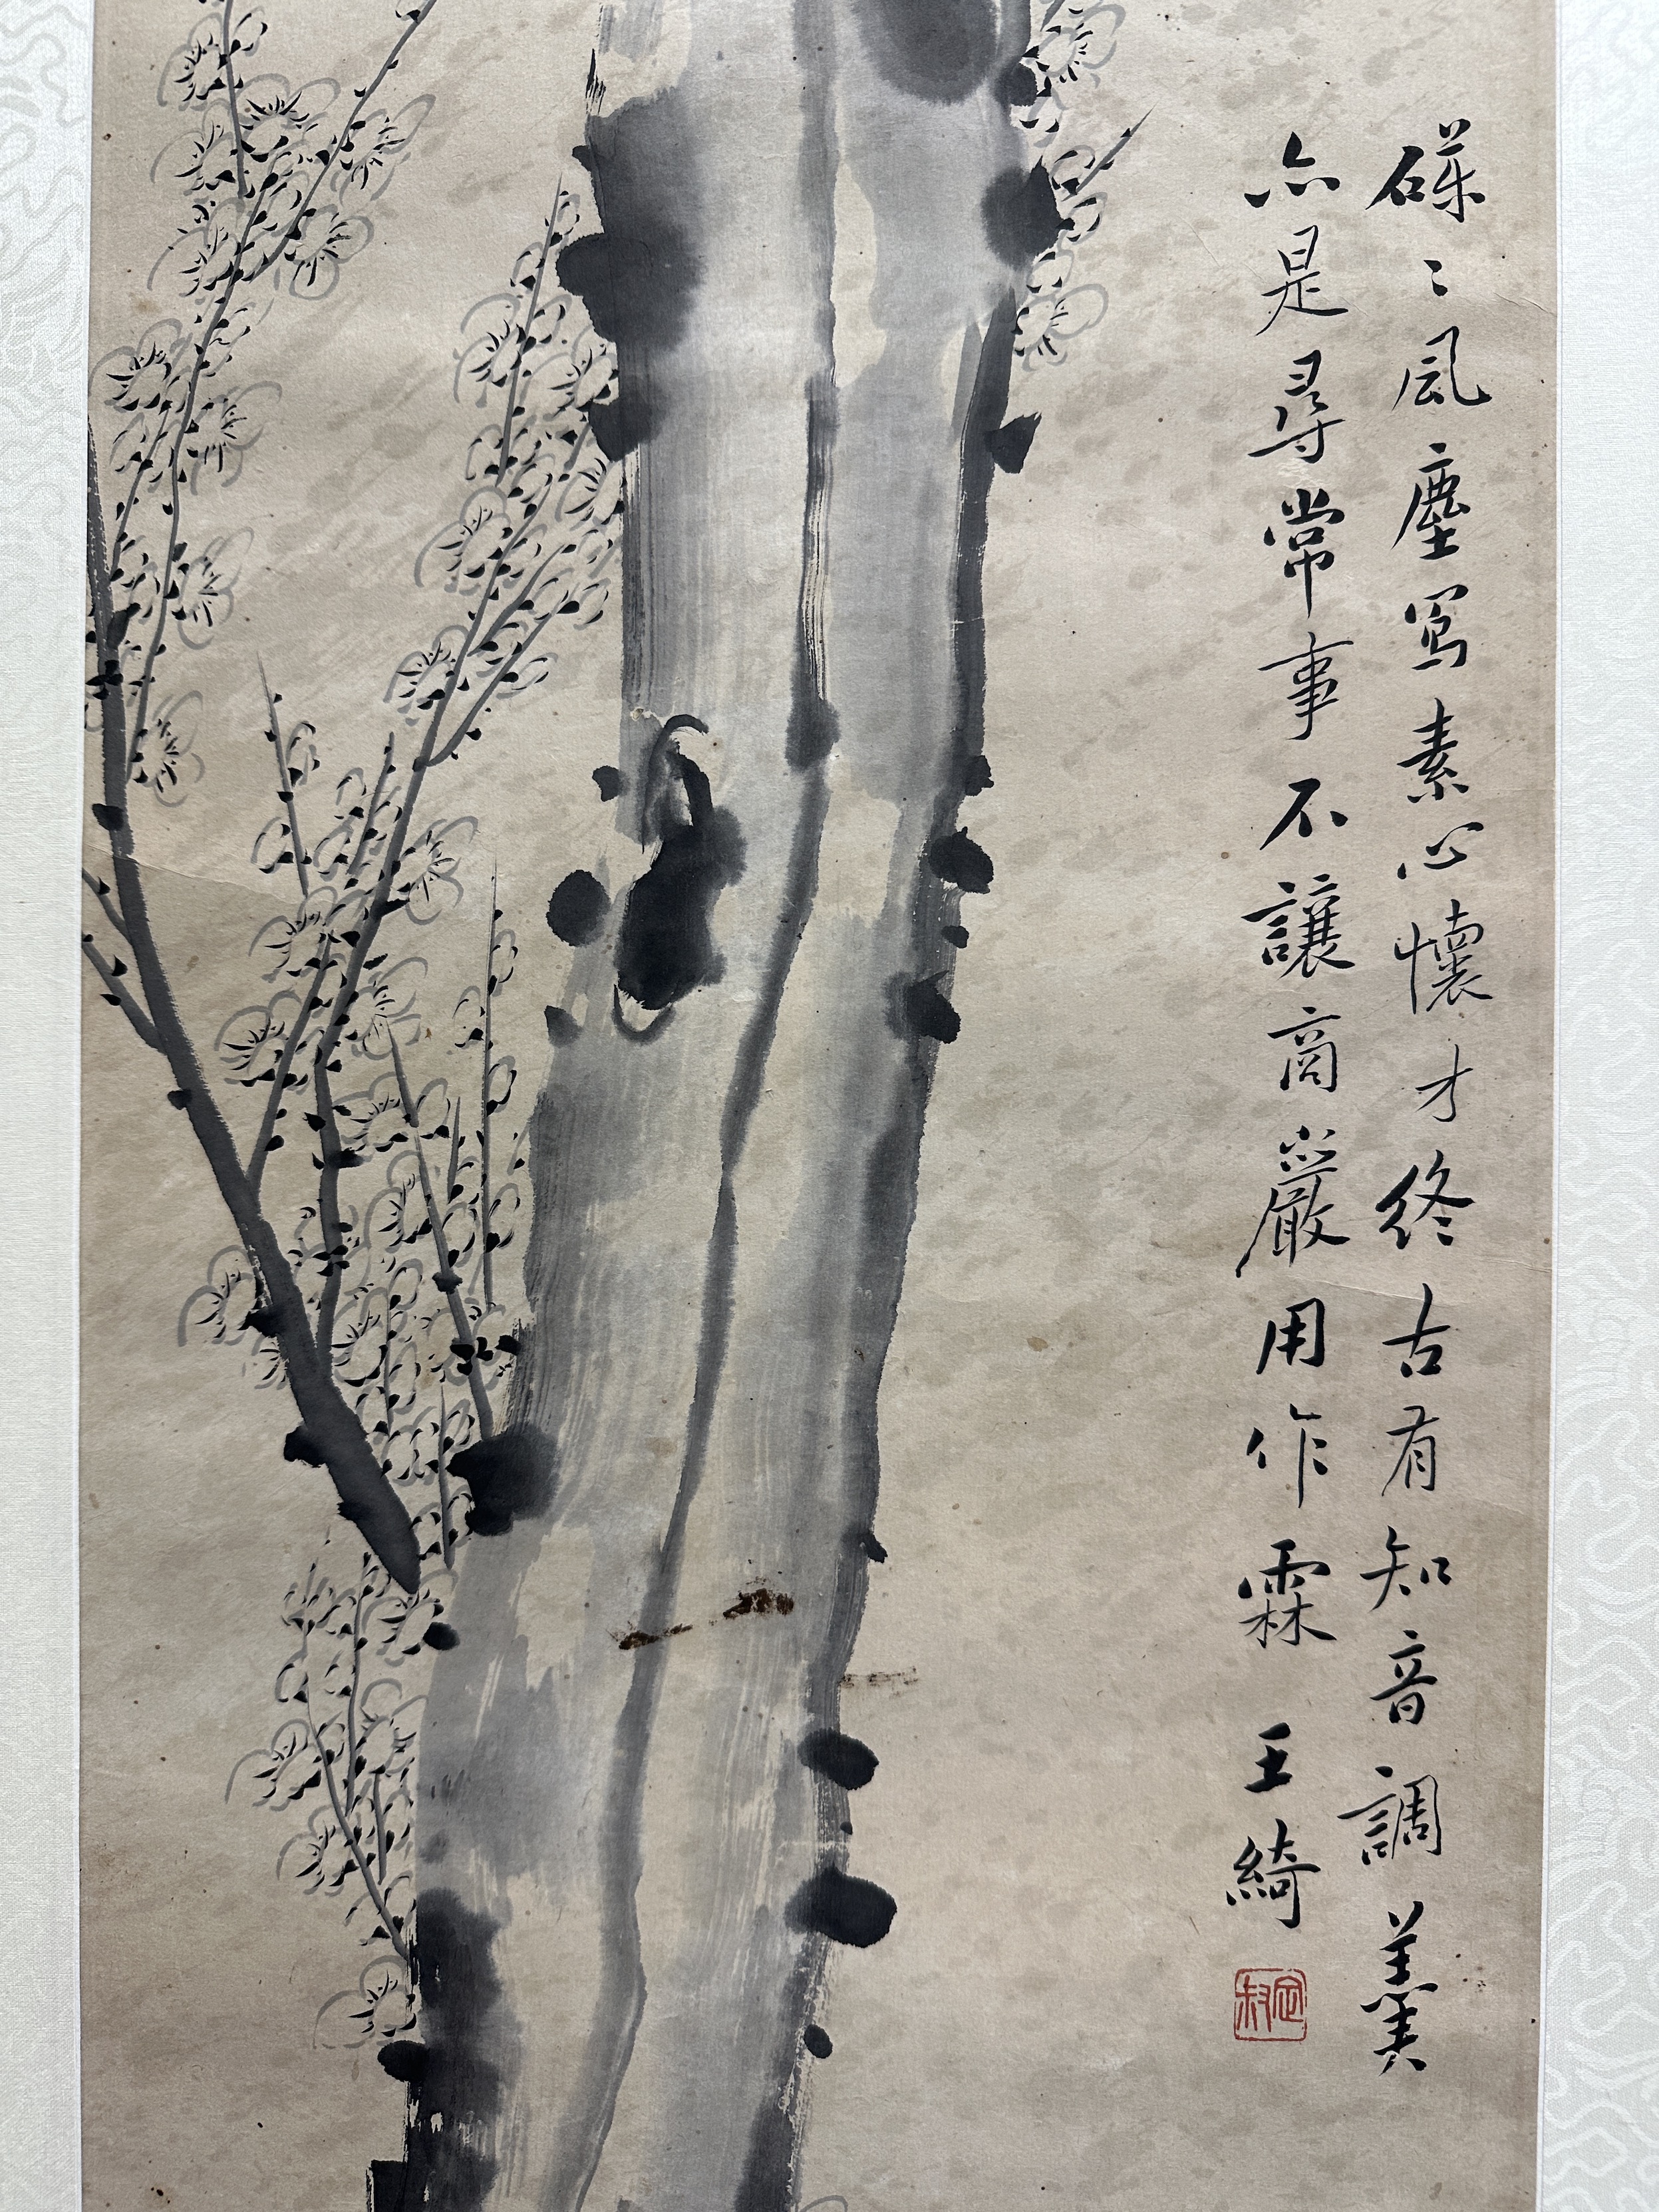 碌〻風塵寫素心懷才終古有知音調羹
亦是尋常事不讓商巖用作霖 王綺
定叔